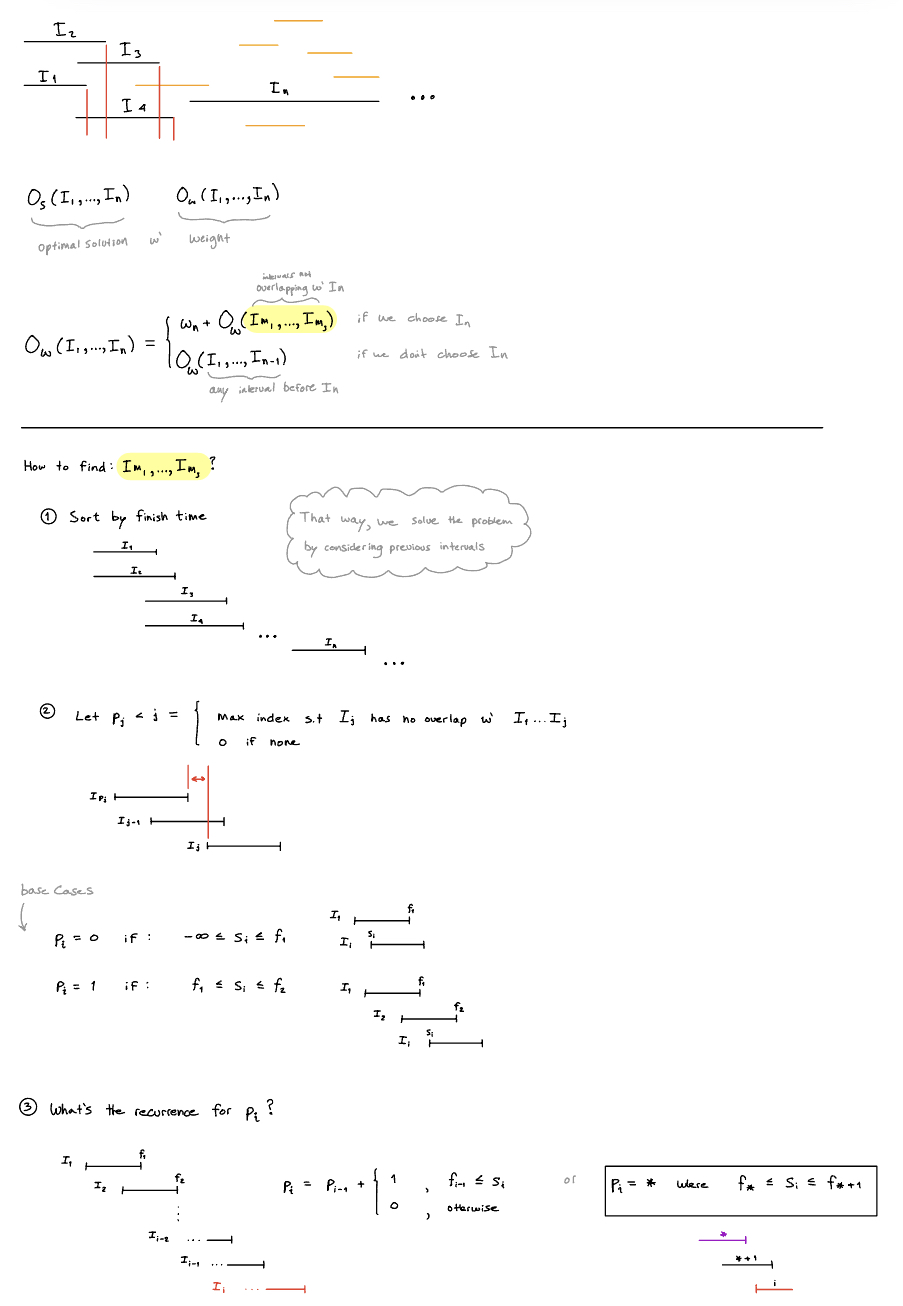 I₂
I₃
I₁
I₄
Iₙ
...
Oₛ(I₁,...,Iₙ) O_w(I₁,...,Iₙ)
optimal solution w' weight
intervals not
overlapping w' Iₙ
O_w(I₁,...,Iₙ) = { wₙ + O_w(I_m₁,...,I_mₛ) if we choose Iₙ
O_w(I₁,...,Iₙ₋₁) if we don't choose Iₙ
any interval before Iₙ
How to find: I_m₁,...,I_mₛ ?
① Sort by finish time
That way, we solve the problem
by considering previous intervals
I₁
I₂
I₃
I₄
...
Iₙ
...
② Let pⱼ < j = { max index s.t Iⱼ has no overlap w' I₁...Iⱼ
0 if none
I_pⱼ
Iⱼ₋₁
Iⱼ
base cases
pᵢ = 0 if : -∞ ≤ sᵢ ≤ f₁
I₁ f₁
Iᵢ sᵢ
pᵢ = 1 if : f₁ ≤ sᵢ ≤ f₂
I₁ f₁
I₂ f₂
Iᵢ sᵢ
③ What's the recurrence for pᵢ ?
I₁ f₁
I₂ f₂
⋮
Iᵢ₋₂ ...
Iᵢ₋₁ ...
Iᵢ ...
pᵢ = pᵢ₋₁ + { 1 , fᵢ₋₁ ≤ sᵢ
0 , otherwise
or
pᵢ = * were f* ≤ sᵢ ≤ f*+1
*
*+1
i